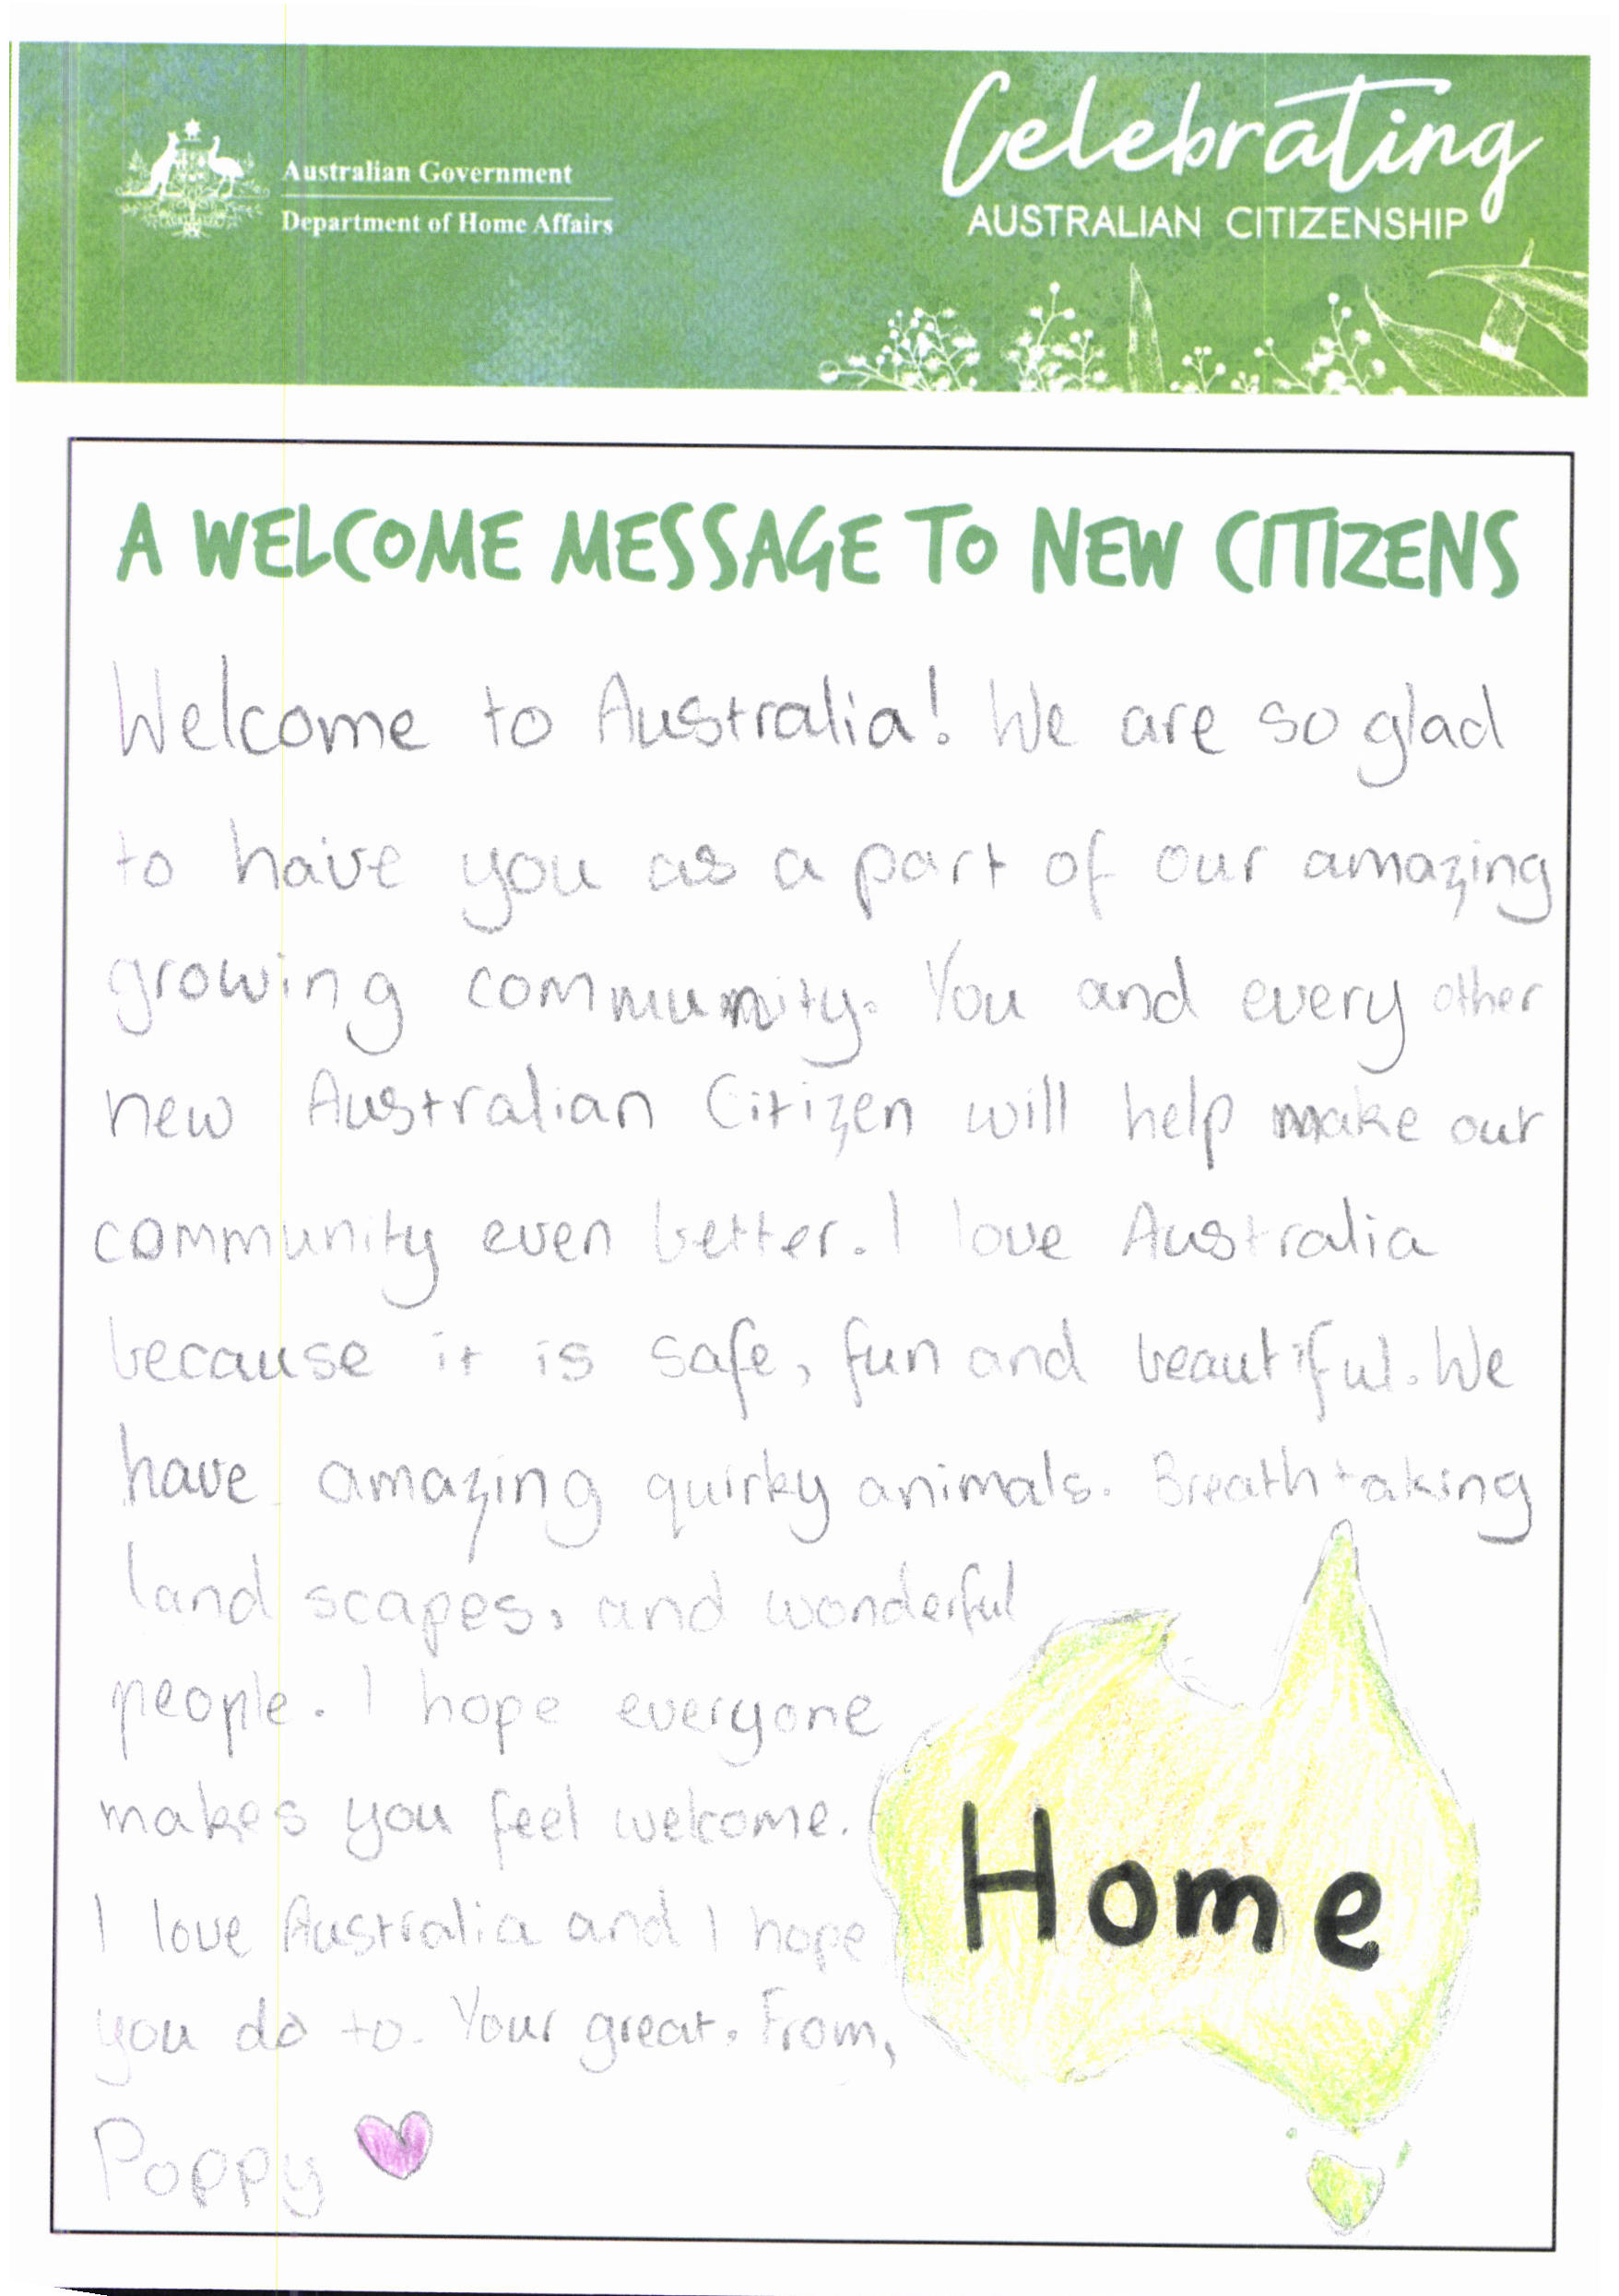 Australian Government
Department of Home Affairs
Celebrating
AUSTRALIAN CITIZENSHIP
A WELCOME MESSAGE TO NEW CITIZENS
Welcome to Australia! We are so glad
to have you as a part of our amazing
growing community. You and every other
new Australian Citizen will help make our
community even better. I love Australia
because it is safe, fun and beautiful. We
have amazing quirky animals. Breathtaking
land scapes, and wonderful
people. I hope everyone
makes you feel welcome.
I love Australia and I hope
you do to. Your great. From,
Poppy
Home